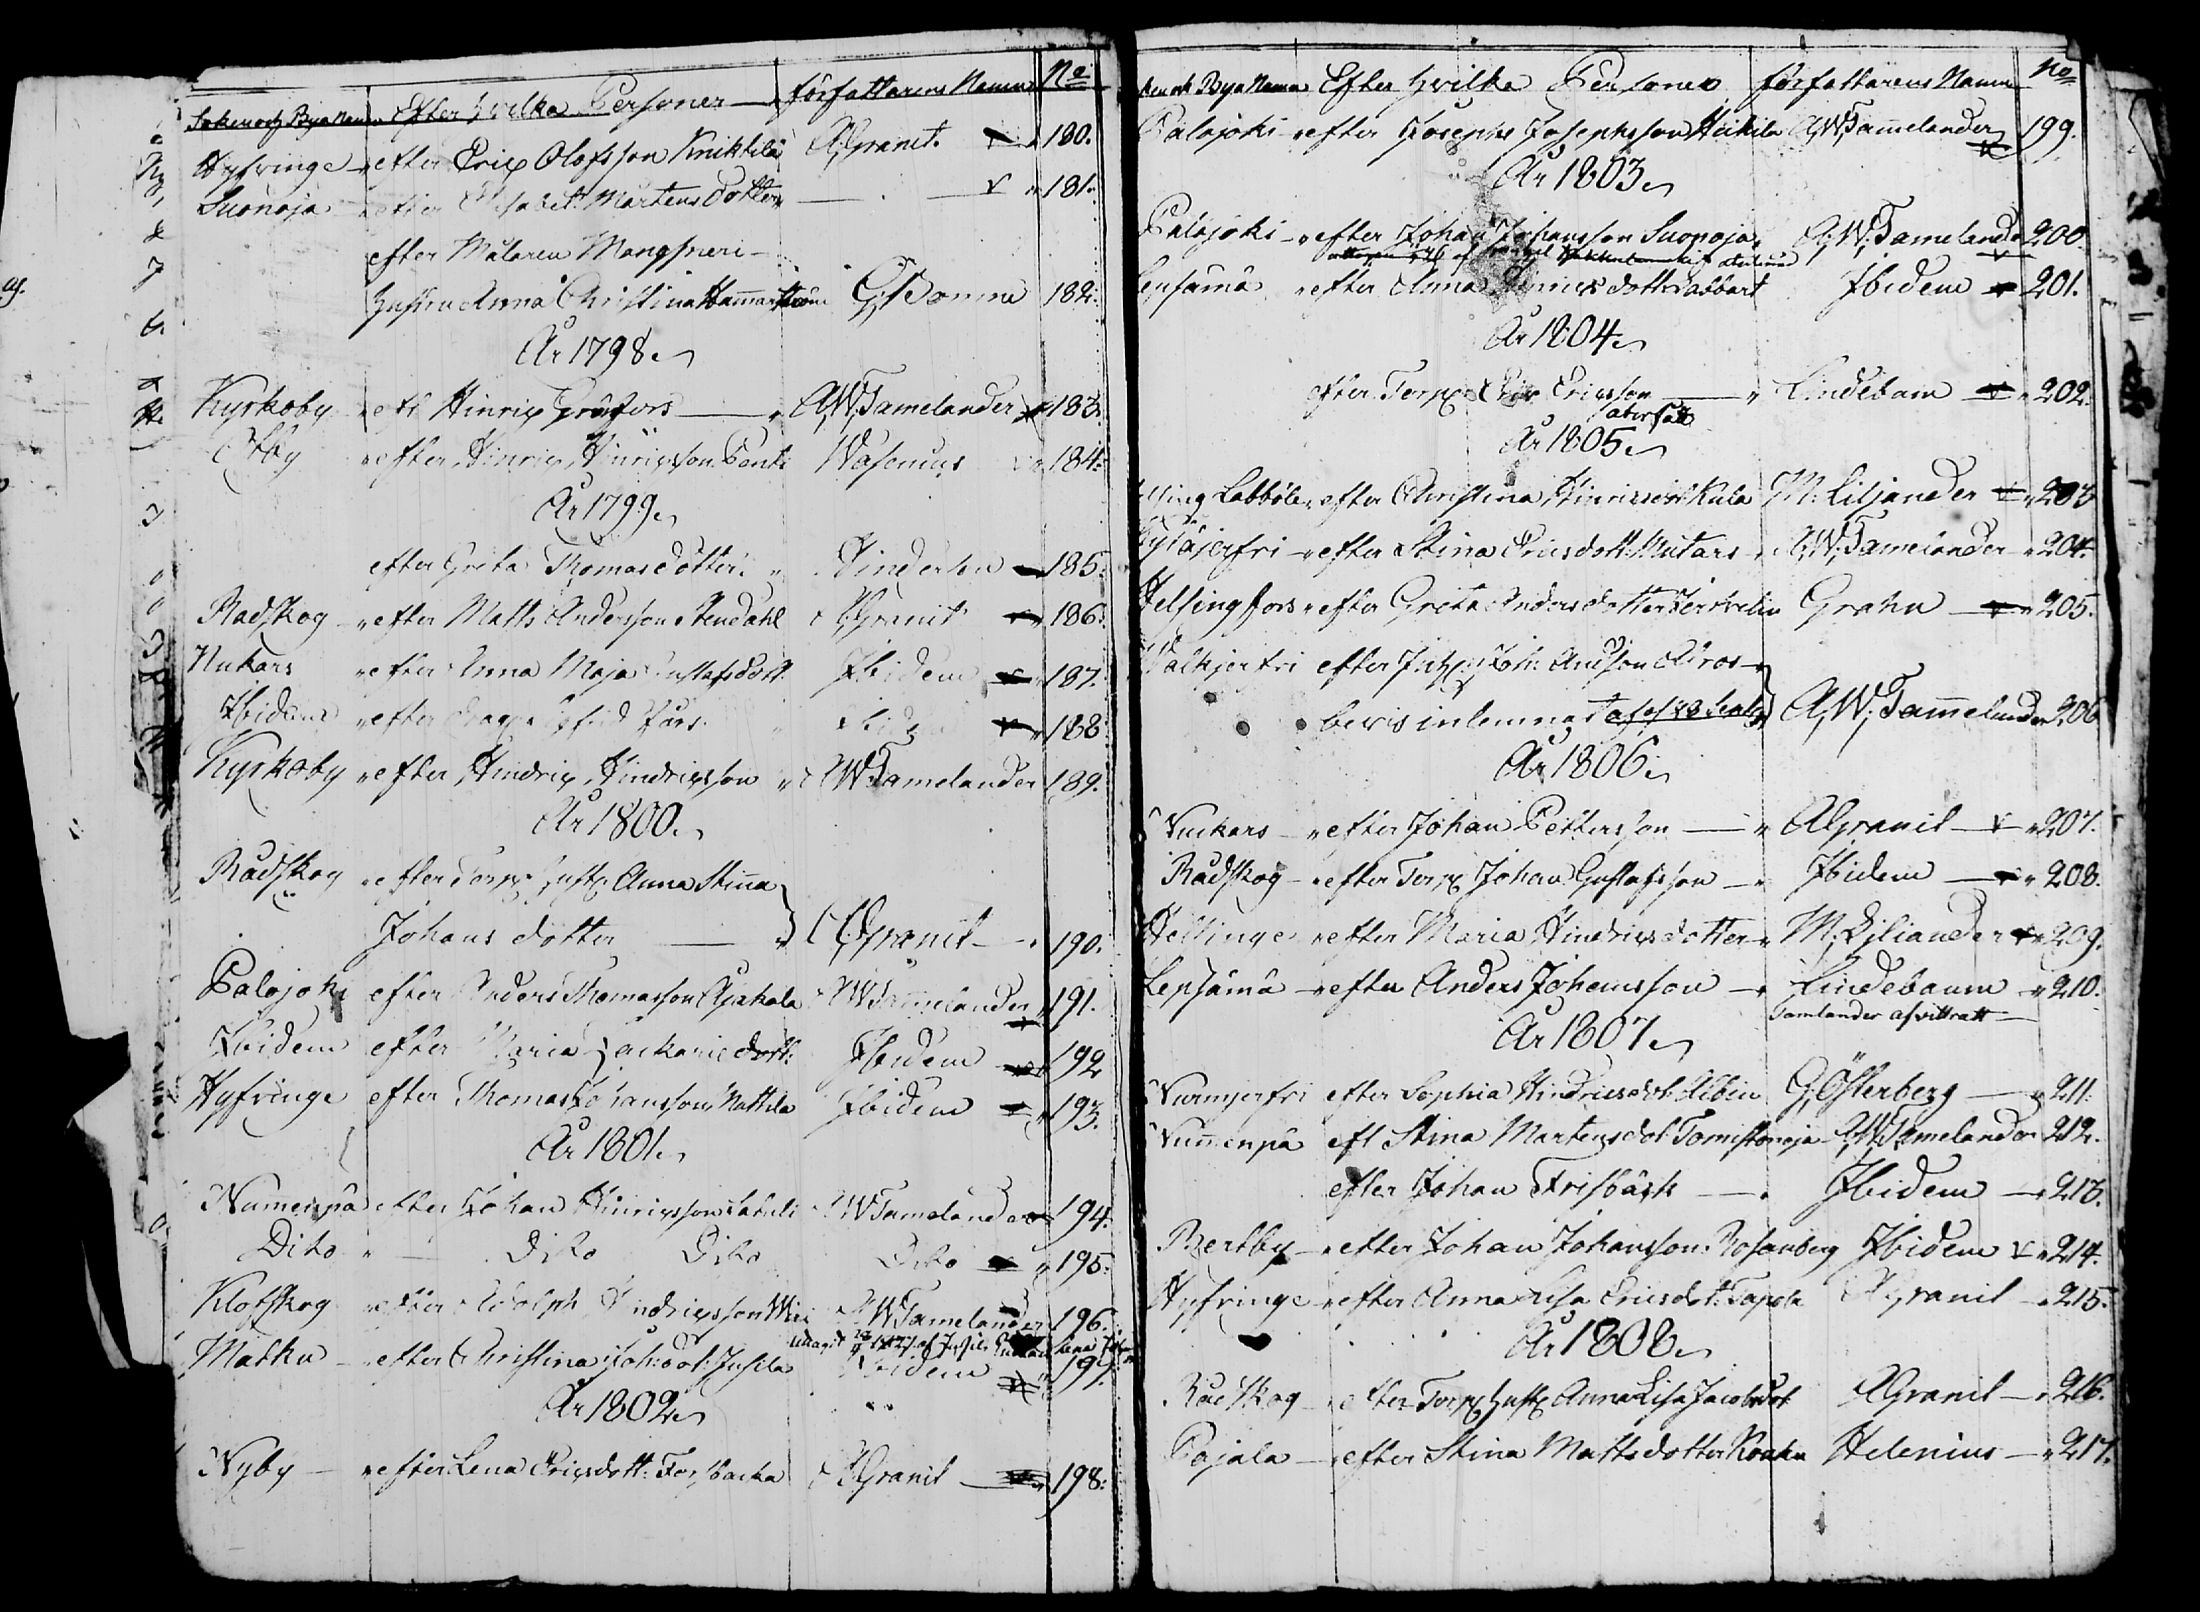 Sokne och Bya Namn Efter hvilka Personer författarens Namn No
Hyfvinge efter Eric Olofsson Knicktilä A Granit. 180.
Suonoja efter Elisabet Mårtens dotter 181.
efter Målaren Mangsneri
hustru Anna Christina Hammarström G. Bonme 182.
År 1798.
Kyrkoby eft Hinric Grufors A. W. Tamelander 183.
Ollby efter Hinric Hinricsson Penti Wasenius 184.
År 1799.
efter Greta Thomasdotter 185.
Radskog efter Matts Andersson Stendahl A Granit 186.
Nukars efter Anna Maja Gustafsdott. Ibidem 187.
Ibidem efter 188
Kyrkoby efter Hindric Hindricsson A W Tamelander 189.
År 1800.
Rådskog efter Torp. hust. Anna Stina
Johans dotter A Granit 190.
Palojoki efter Anders Thomasson Ajakala A W Tamelander 191.
Ibidem efter Maria Zackarie dott: Ibidem 192
Hyfvinge efter Thomas Johansson Nattila Ibidem 193.
År 1801.
Numenpä efter Johan Hinricsson A W Tamelander 194.
Dito Dito Dito Dito 195.
Klofskog efter Adolph Hindricsson A W Tamelander 196.
Matku efter Christina Joh: dot: Jusila Ibidem 197.
År 1802
Nyby efter Lena Ericsdott: Forsbacka A Granit 198.
och Bya Namn Efter hvilka Personer författarens Namn No
Palojoki efter Josephs Josephsson Heikila A W Tamelander 199.
År 1803.
Palojoki efter Johan Johansson Suonoja A. W. Tamelander 200.
Lepsämä efter Anna Ibidem 201.
År 1804.
efter Torp. Eric Ericsson Lindebaum 202.
återfått
År 1805.
Labböle efter Christina Hinricsdot Kula M. Liljander 203
efter Stina Ericsdott: Mutars A. W. Tamelander 204.
Helsingfors efter Greta Andersdotter Grahn 205.
efter Joh: Andsson Adros
bevis inlemnat A. W. Tamelander 206
År 1806.
Nuckars efter Johan Pettersson A Granit 207.
Rådskog efter Torp. Johan Gustafsson Ibidem 208.
Hellinge efter Maria Hindrics dotter M. Liliander 209.
Lepsämä efter Anders Johansson Lindebaum 210.
Tamlander afvittratt
År 1807.
Nurmjerfvi efter Sophia Hindricsdot. Albin G Österberg 211.
Numenpä eft Stina Martens dot. Tomistonoja A. W. Tamelander 212.
efter Johan Frisbäck Ibidem 213.
Bertby efter Johan Johansson Rosenberg Ibidem 214.
Hyfvinge efter Anna Lisa Ericsdot: Tapola A Granit 215.
År 1808.
Rådskog efter Torp. hust. Anna Lisa Jacobsdot A Granit 216.
Pajala efter Stina Mattsdotter Helenius 217.